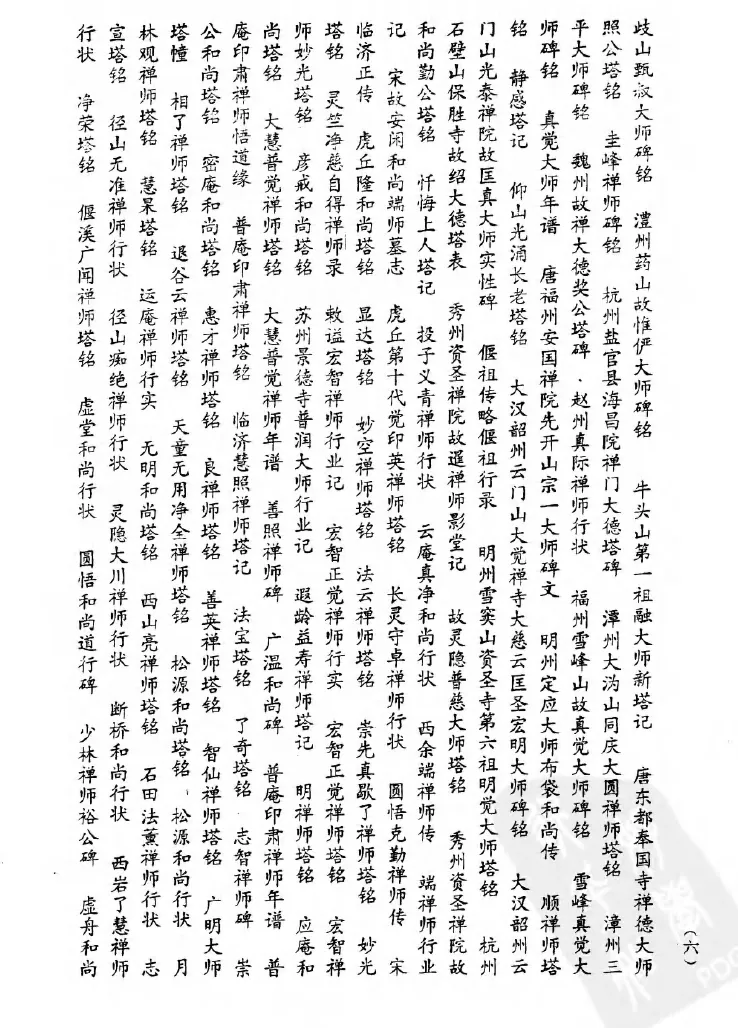 歧山甄叔大师碑铭 澧州药山故惟俨大师碑铭 牛头山第一祖融大师新塔记 唐东都奉国寺禅德大师
照公塔铭 圭峰禅师碑铭 杭州盐官县海昌院禅门大德塔碑 潭州大沩山同庆大圆禅师塔铭 漳州三
平大师碑铭 魏州故禅大德奖公塔碑 赵州真际禅师行状 福州雪峰山故真觉大师碑铭 雪峰真觉大
师碑铭 真觉大师年谱 唐福州安国禅院先开山宗一大师碑文 明州定应大师布袋和尚传 顺禅师塔
铭 静感塔记 仰山光涌长老塔铭 大汉韶州云门山大觉禅寺大慈云匡圣宏明大师碑铭 大汉韶州云
门山光泰禅院故匡真大师实性碑 偃祖传略偃祖行录 明州雪窦山资圣寺第六祖明觉大师塔铭 杭州
石壁山保胜寺故绍大德塔表 秀州资圣禅院故暹禅师影堂记 故灵隐普慈大师塔铭 秀州资圣禅院故
和尚勤公塔铭 忏悔上人塔记 投子义青禅师行状 云庵真净和尚行状 西余端禅师传 端禅师行业
记 宋故安闲和尚端师墓志 虎丘第十代觉印英禅师塔铭 长灵守卓禅师行状 圆悟克勤禅师传 宋
临济正传 虎丘隆和尚塔铭 显达塔铭 妙空禅师塔铭 法云禅师塔铭 崇先真歇了禅师塔铭 妙光
塔铭 灵竺净慈自得禅师录 敕谥宏智禅师行业记 宏智正觉禅师行实 宏智正觉禅师塔铭 宏智禅
师妙光塔铭 彦戒和尚塔铭 苏州景德寺普润大师行业记 遐龄益寿禅师塔记 明禅师塔铭 应庵和
尚塔铭 大慧普觉禅师塔铭 大慧普觉禅师年谱 善照禅师碑 广温和尚碑 普庵印肃禅师年谱 普
庵印肃禅师悟道缘 普庵印肃禅师塔铭 临济慧照禅师塔记 法宝塔铭 了奇塔铭 志智禅师碑 崇
公和尚塔铭 密庵和尚塔铭 惠才禅师塔铭 良禅师塔铭 善英禅师塔铭 智仙禅师塔铭 广明大师
塔幢 相了禅师塔铭 退谷云禅师塔铭 天童无用净全禅师塔铭 松源和尚塔铭 松源和尚行状 月
林观禅师塔铭 慧杲塔铭 运庵禅师行实 无明和尚塔铭 西山亮禅师塔铭 石田法薰禅师行状 志
宣塔铭 径山无准禅师行状 径山痴绝禅师行状 灵隐大川禅师行状 断桥和尚行状 西岩了慧禅师
行状 净荣塔铭 偃溪广闻禅师塔铭 虚堂和尚行状 圆悟和尚道行碑 少林禅师裕公碑 虚舟和尚
（六）